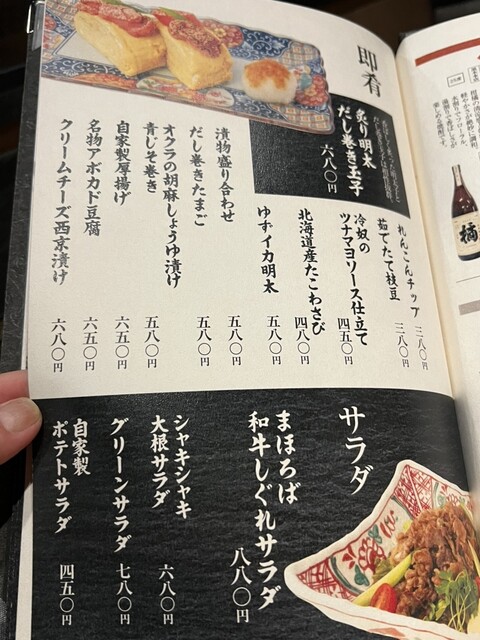 即肴
炙り明太
だし巻き玉子
六八〇円
れんこんチップ
三八〇円
茹でたて枝豆
三八〇円
冷奴の
ツナマヨソース仕立て
四五〇円
北海道産たこわさび
四八〇円
ゆずイカ明太
五八〇円
漬物盛り合わせ
五八〇円
だし巻きたまご
五八〇円
オクラの胡麻しょうゆ漬け
青じそ巻き
五八〇円
自家製厚揚げ
六五〇円
名物アボカド豆腐
六五〇円
クリームチーズ西京漬け
六八〇円
サラダ
まほろば
和牛しぐれサラダ
八八〇円
シャキシャキ
大根サラダ
六八〇円
グリーンサラダ
七八〇円
自家製
ポテトサラダ
四五〇円
橘